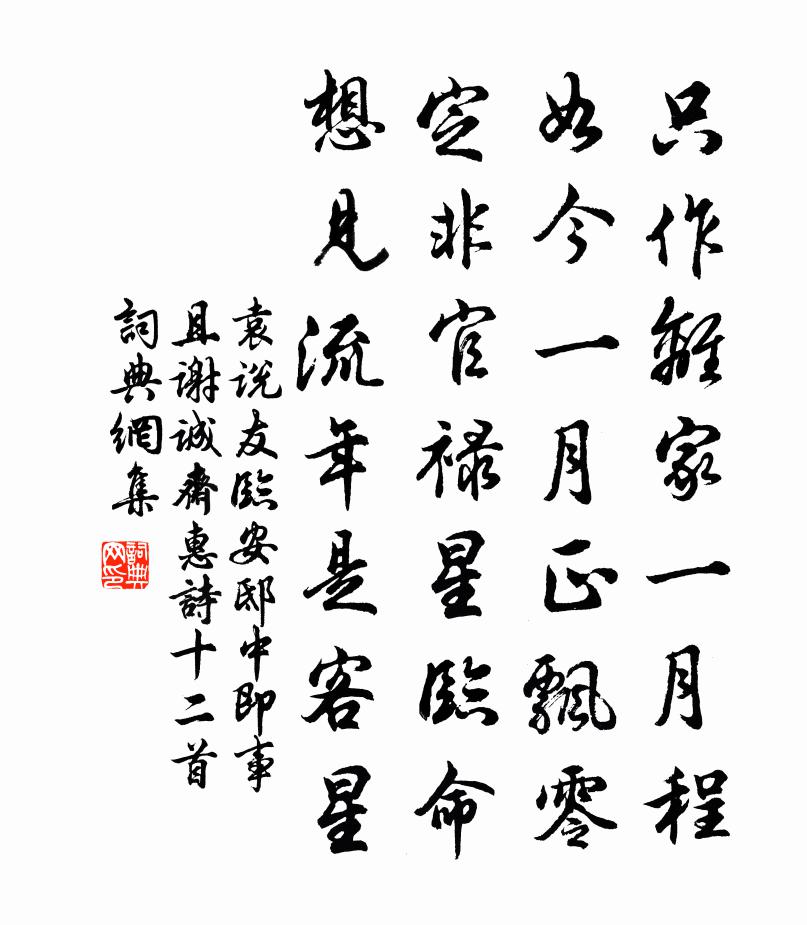 只作離家一月程
如今一月正飄零
定非官禄星臨命
想見流年是客星
袁说友臨安邸中即事
且謝誠齋惠詩十二首
詞典網集
詞典網印